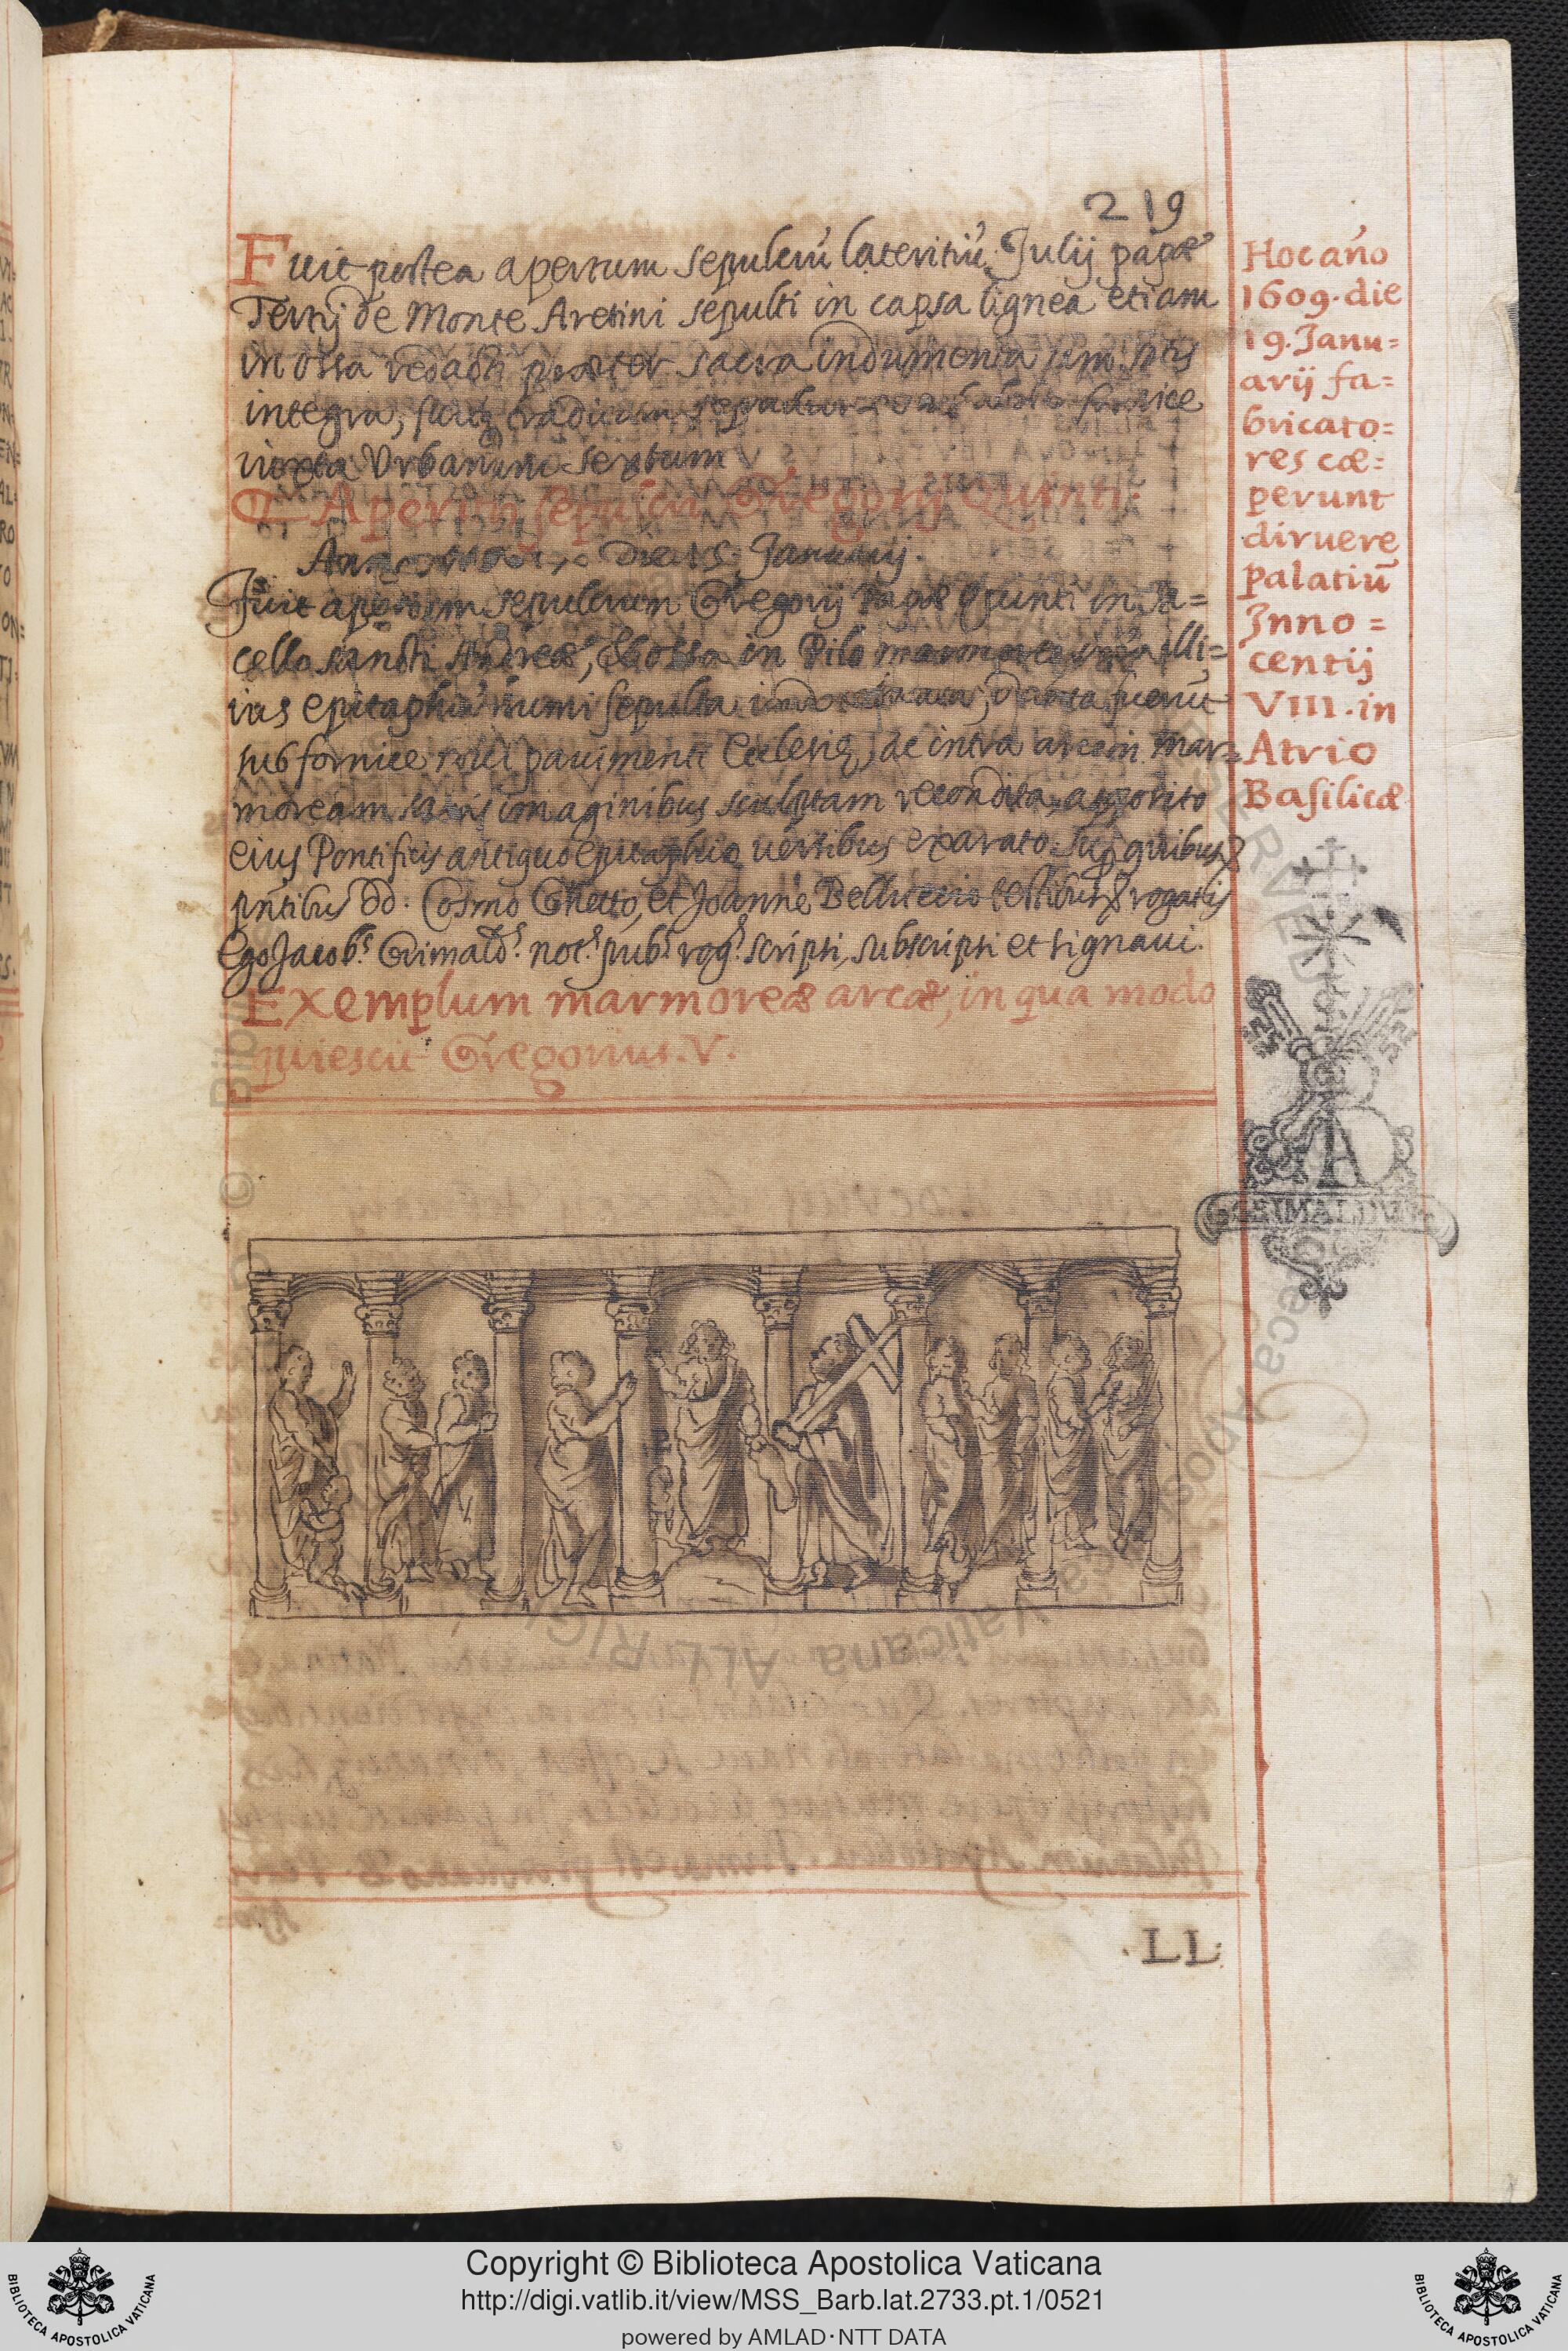 219
Fuit postea apertum sepulcrū lateritiū Julij papæ
Tertij de Monte Aretini sepulti in capsa lignea etiam
in ossa redacti præter sacra indumenta
integra,
iuxta Urbanum Sextum
Apertū sepulcrū Gregorij Quinti.
Januarij.
Fuit apertum sepulcrum Gregorij Papæ Quinti in Sa=
cello sancti Andreæ, & ossa in Pilo
epitaphiū humi sepulta fuerūt
sub fornice noui pauimenti Ecclesię, ac intra arcam mar=
moream sacris imaginibus sculptam recondita, apposito
eius Pontificis antiquo epitaphio uersibus exarato. Sup quibus
pn̄tibus dd. Cosmo Ghetto, et Joanne Belluccio testibus rogatis
Ego Jacobs Grimalds nots pubs rogs scripsi, subscripsi et signaui.
Exemplum marmoreæ arcæ, in qua modo
quiescit Gregorius. V.
Hoc an̄o
1609. die
19. Janu=
arij fa=
bricato=
res cœ=
perunt
diruere
palatiū
Inno=
centij
VIII. in
Atrio
Basilicæ
GRIMALDVS
.LL.
Copyright © Biblioteca Apostolica Vaticana
http://digi.vatlib.it/view/MSS_Barb.lat.2733.pt.1/0521
powered by AMLAD·NTT DATA
BIBLIOTECA APOSTOLICA VATICANA
BIBLIOTECA APOSTOLICA VATICANA